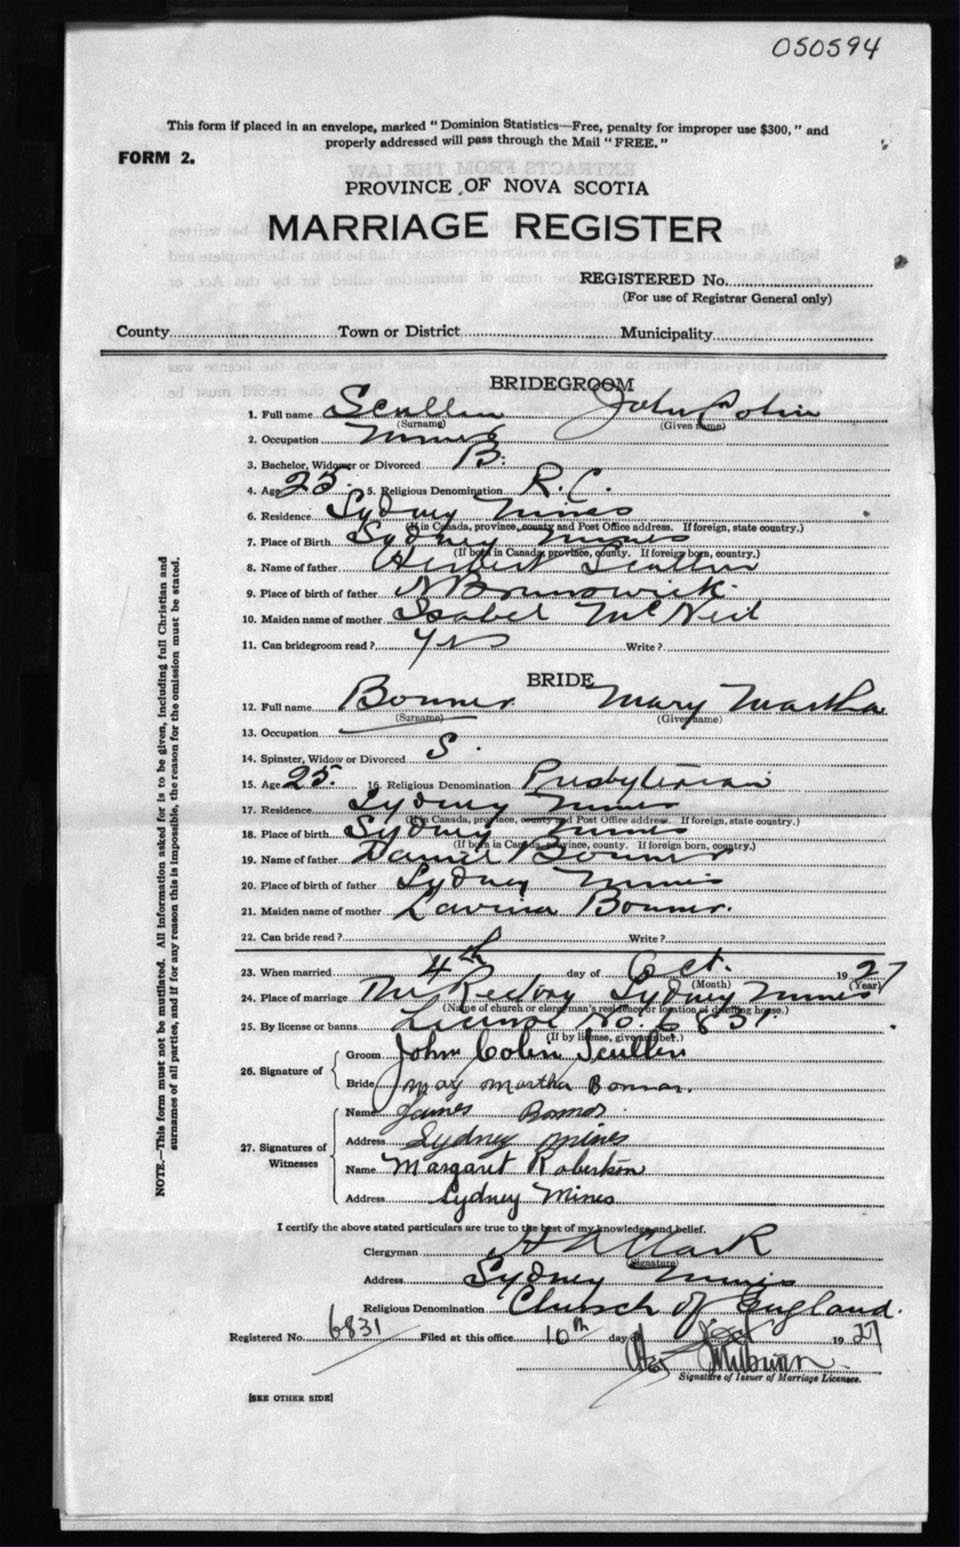 050594
This form if placed in an envelope, marked "Dominion Statistics—Free, penalty for improper use $300," and
properly addressed will pass through the Mail "FREE."
FORM 2.
PROVINCE OF NOVA SCOTIA
MARRIAGE REGISTER
REGISTERED No.
(For use of Registrar General only)
County Town or District Municipality
BRIDEGROOM
1. Full name Scullin John Colin
(Surname) (Given name)
2. Occupation
3. Bachelor, Widower or Divorced B.
4. Age 25. 5. Religious Denomination R.C.
6. Residence Sydney Mines
(If in Canada, province, county and Post Office address. If foreign, state country.)
7. Place of Birth Sydney Mines
(If born in Canada, province, county. If foreign born, country.)
8. Name of father Herbert Scullin
9. Place of birth of father N Brunswick.
10. Maiden name of mother Isabel McNeil
11. Can bridegroom read? Yes Write?
BRIDE
12. Full name Bonner Mary Martha
(Surname) (Given name)
13. Occupation
14. Spinster, Widow or Divorced S.
15. Age 25. 16. Religious Denomination Presbyterian
17. Residence Sydney Mines
(If in Canada, province, county and Post Office address. If foreign, state country.)
18. Place of birth Sydney Mines
(If born in Canada, province, county. If foreign born, country.)
19. Name of father Daniel Bonner
20. Place of birth of father Sydney Mines
21. Maiden name of mother Lavina Bonner.
22. Can bride read? Write?
23. When married 4th day of Oct. 1927
(Month) (Year)
24. Place of marriage The Rectory Sydney Mines
(Name of church or clergyman's residence or location of dwelling house.)
25. By license or banns License No. 6831.
(If by license, give number.)
26. Signature of Groom John Colin Scullin
Bride May Martha Bonnar.
27. Signatures of Witnesses Name James Bonnar.
Address Sydney Mines
Name Margaret Robertson
Address Sydney Mines
I certify the above stated particulars are true to the best of my knowledge and belief.
Clergyman Clark
(Signature)
Address Sydney Mines
Religious Denomination Church of England.
Registered No. 6831 Filed at this office 10th day of Oct 1927
Signature of Issuer of Marriage Licenses.
[SEE OTHER SIDE]
NOTE.—This form must not be mutilated. All information asked for is to be given, including full Christian and
surnames of all parties, and if for any reason this is impossible, the reason for the omission must be stated.